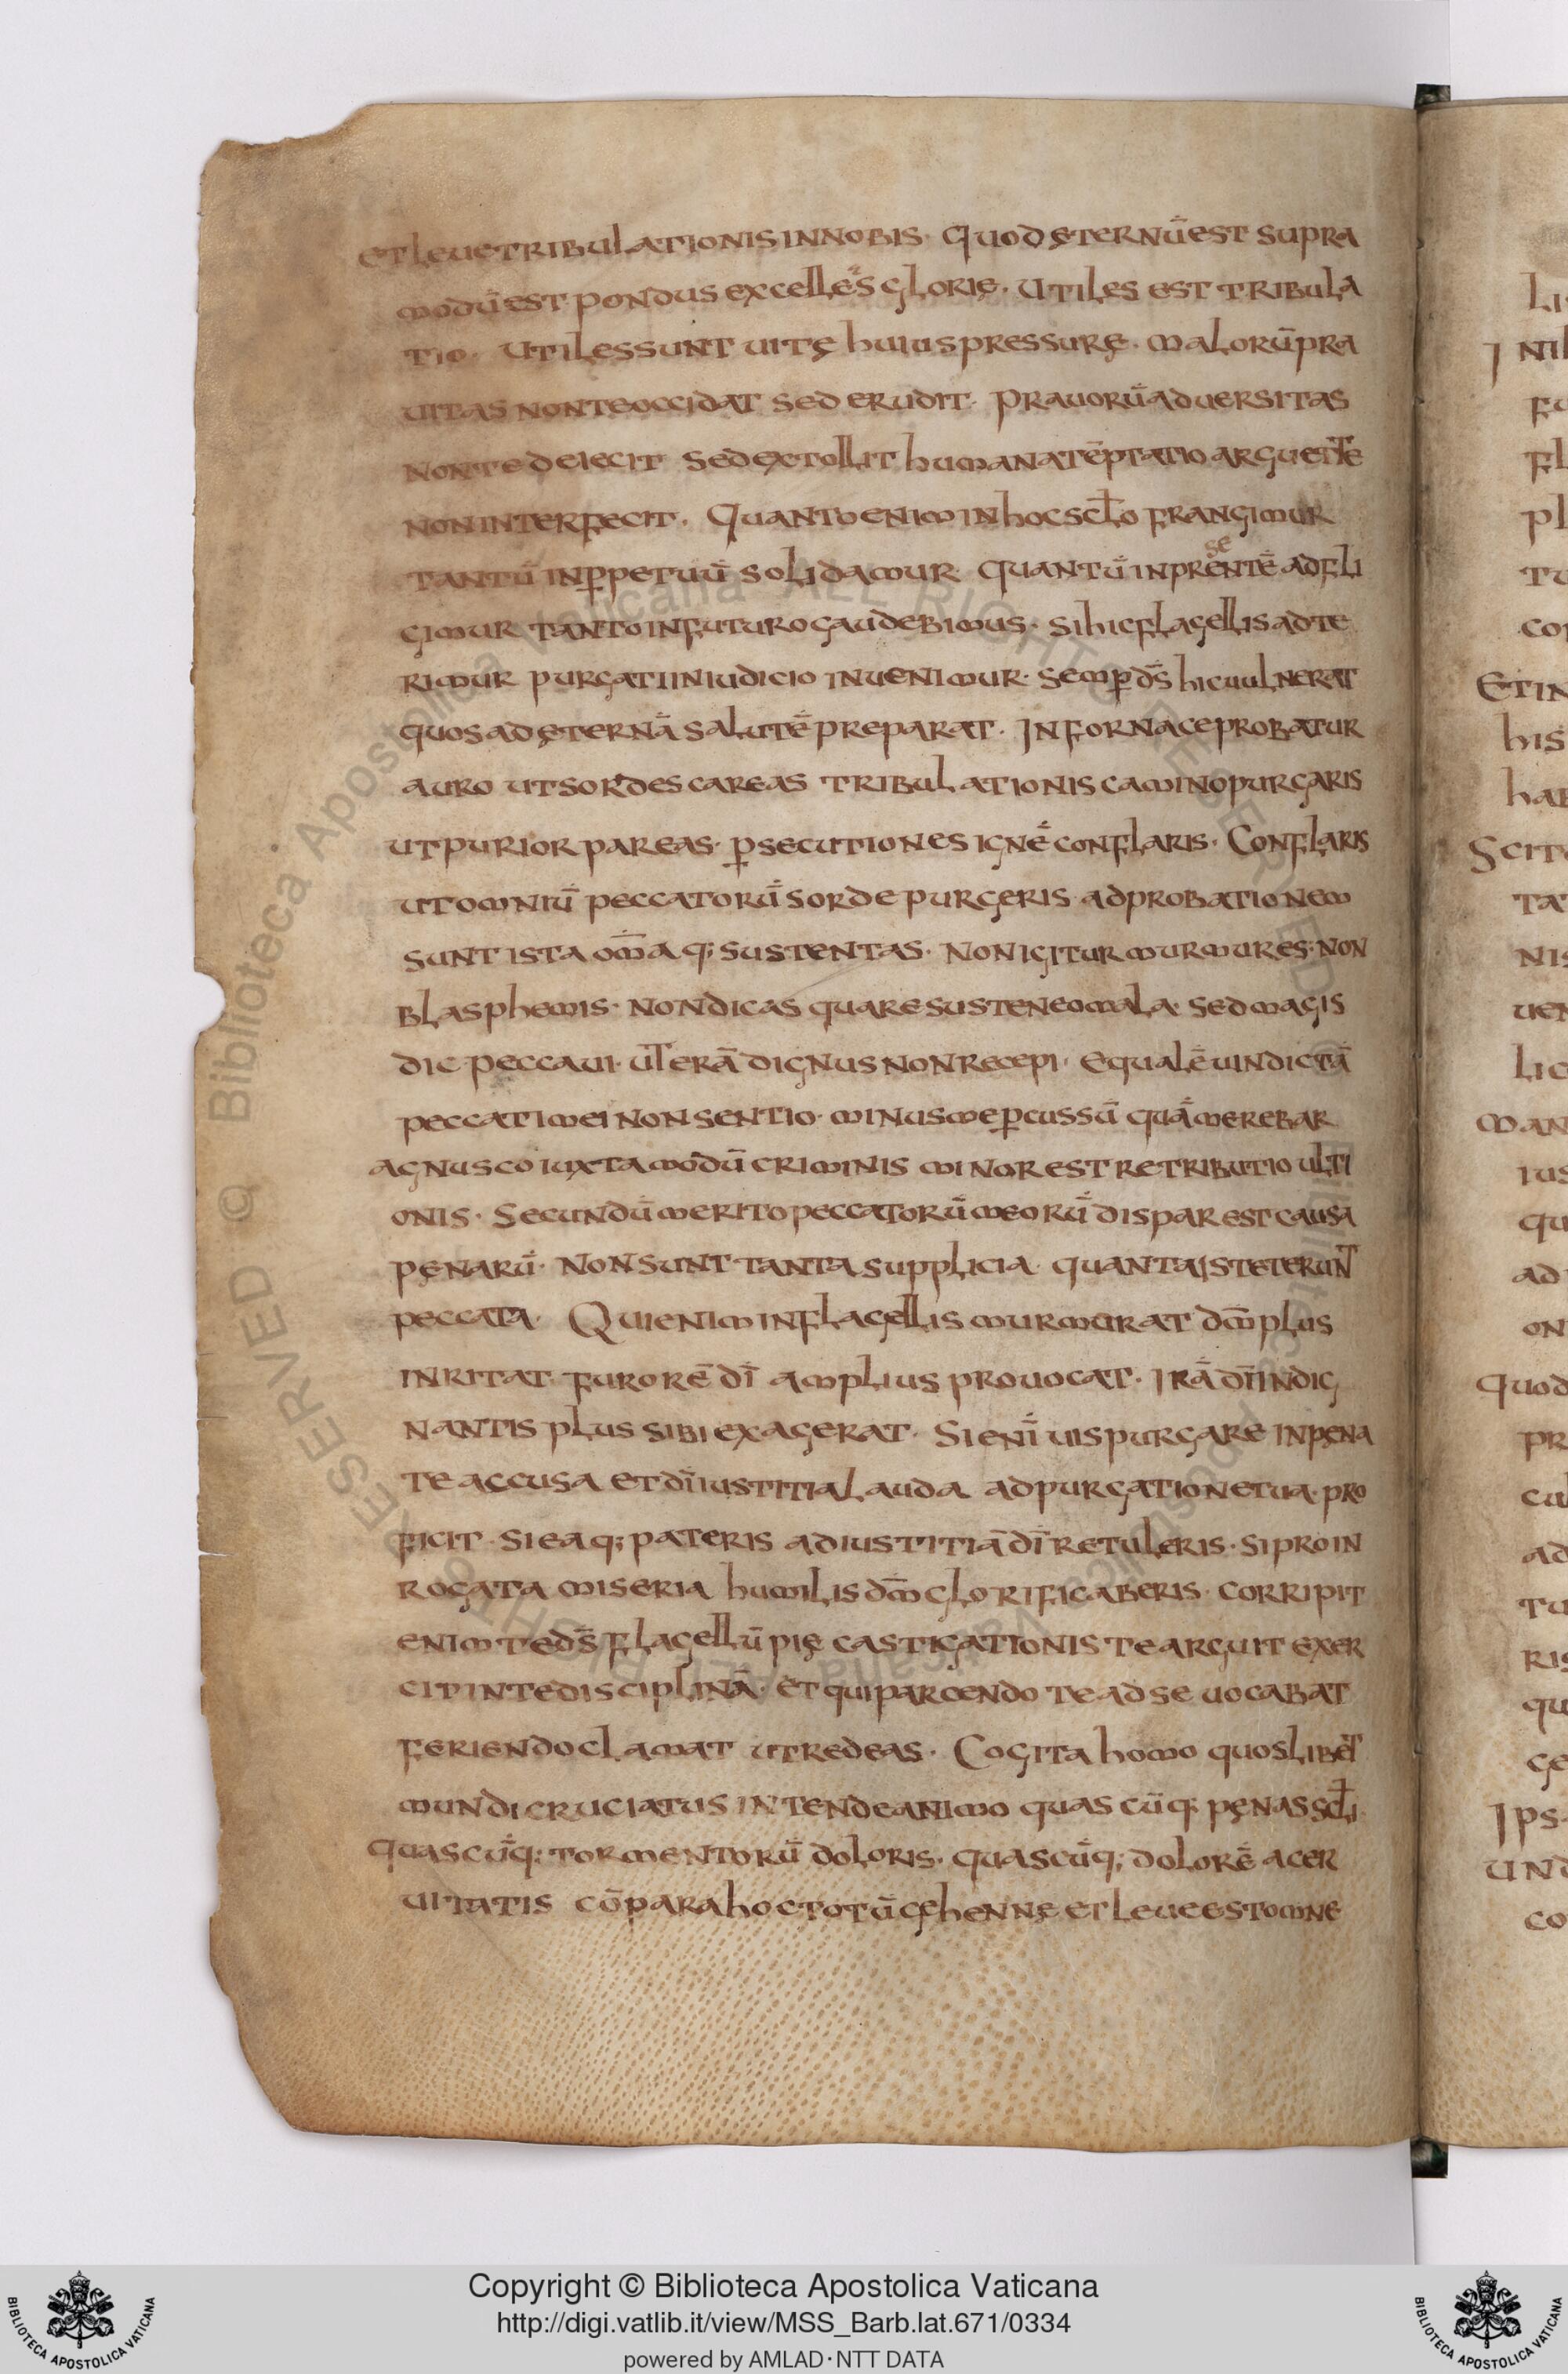 et leue tribulationis in nobis · quod ęternū est supra
modū est pondus excellēs glorię · Utiles est tribula
tio · Utiles sunt uitę huius pressurę · malorū pra
uitas non te occidat sed erudit · prauorū aduersitas
non te deiecit sed extollit humana tēptatio arguet te
non interfecit · Quanto enim in hoc scło frangimur
tantū in ꝑpetuū solidamur quantū in presentē adfli
gimur tanto in futuro gaudebimus · si hic flagellis adte
rimur purgati in iudicio inuenimur · semꝑ ds̄ hic uulnerat
quos ad ęternā salutē preparat · In fornace probatur
auro ut sordes careas tribulationis camino purgaris
ut purior pareas · ꝑsecutiones ignē conflaris · Conflaris
ut omniū peccatorū sorde purgeris ad probationem
sunt ista om̄a q; sustentas · Non igitur murmures · non
blasphemis · non dicas quare susteneo mala · sed magis
dic peccaui · ut erā dignus non recepi · equalē uindictā
peccati mei non sentio · minus me ꝑcussū quā merebar
agnusco iuxta modū criminis minor est retributio ulti
onis · Secundū merito peccatorū meorū dispar est causa
pęnarū · Non sunt tanta supplicia · quanta isteterunt
peccata · Qui enim in flagellis murmurat dm̄ plus
inritat furorē dī amplius prouocat · Irā dī indig
nantis plus sibi exagerat · Si enī uis purgare in pęna
te accusa et dī iustitia lauda ad purgatione tua · pro
ficit · si ea q; pateris ad iustitiā dī retuleris · si pro in
rogata miseria humilis dm̄ glorificaberis · corripit
enim te ds̄ flagellū pię castigationis te arguit exer
cit in te disciplinā · et qui parcendo te ad se uocabat
feriendo clamat ut redeas · Cogita homo quoslibet
mundi cruciatus intende animo quas cūq; pęnas scłi
quascūq; tormentorū doloris · quascūq; dolorē acer
uitatis cōpara hoc totū gehennę et leue est omne
Copyright © Biblioteca Apostolica Vaticana
http://digi.vatlib.it/view/MSS_Barb.lat.671/0334
powered by AMLAD·NTT DATA